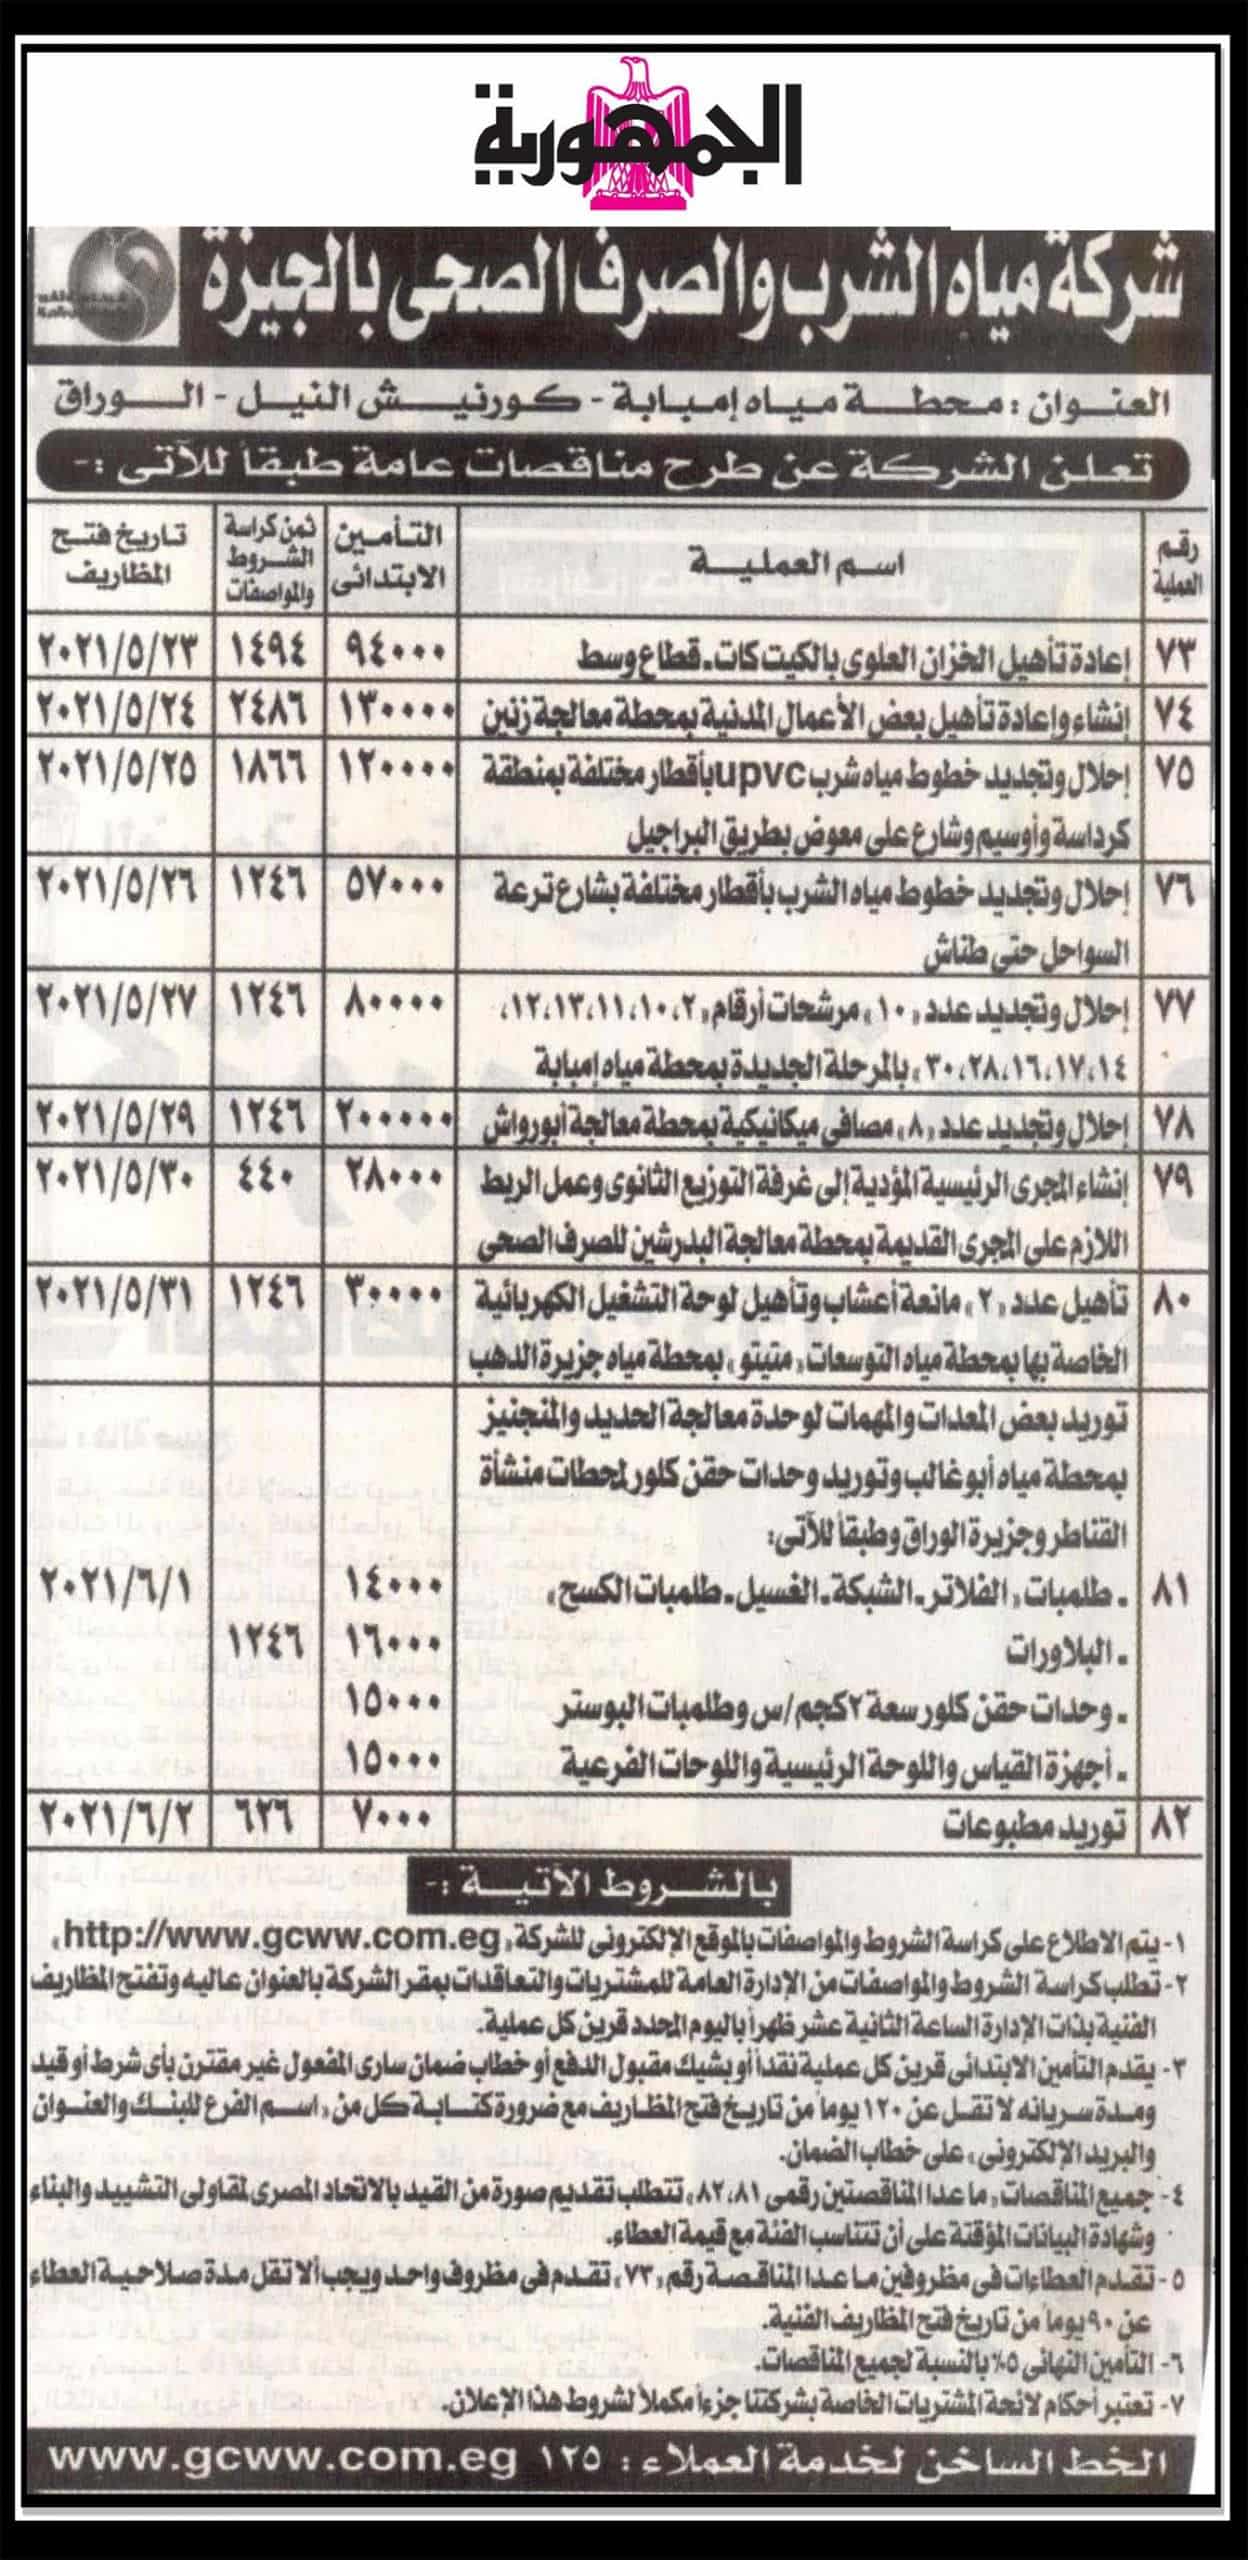 الجمهورية
شركة مياه الشرب والصرف الصحى بالجيزة
العنوان : محطة مياه إمبابة - كورنيش النيل - الوراق
تعلن الشركة عن طرح مناقصات عامة طبقاً للآتى :-
رقم العملية | اسم العملية | التأمين الابتدائى | ثمن كراسة الشروط والمواصفات | تاريخ فتح المظاريف
٧٣ | إعادة تأهيل الخزان العلوى بالكيت كات ـ قطاع وسط | ٩٤٠٠٠ | ١٤٩٤ | ٢٠٢١/٥/٢٣
٧٤ | إنشاء وإعادة تأهيل بعض الأعمال المدنية بمحطة معالجة زنين | ١٣٠٠٠٠ | ٢٤٨٦ | ٢٠٢١/٥/٢٤
٧٥ | إحلال وتجديد خطوط مياه شرب upvc بأقطار مختلفة بمنطقة | ١٢٠٠٠٠ | ١٨٦٦ | ٢٠٢١/٥/٢٥
كرداسة وأوسيم وشارع على معوض بطريق البراجيل
٧٦ | إحلال وتجديد خطوط مياه الشرب بأقطار مختلفة بشارع ترعة | ٥٧٠٠٠ | ١٢٤٦ | ٢٠٢١/٥/٢٦
السواحل حتى طناش
٧٧ | إحلال وتجديد عدد «١٠» مرشحات أرقام «٢، ١٠، ١١، ١٣، ١٢، | ٨٠٠٠٠ | ١٢٤٦ | ٢٠٢١/٥/٢٧
١٤، ١٧، ١٦، ٢٨، ٣٠» بالمرحلة الجديدة بمحطة مياه إمبابة
٧٨ | إحلال وتجديد عدد «٨» مصافى ميكانيكية بمحطة معالجة أبورواش | ٢٠٠٠٠٠ | ١٢٤٦ | ٢٠٢١/٥/٢٩
٧٩ | إنشاء المجرى الرئيسية المؤدية إلى غرفة التوزيع الثانوى وعمل الربط | ٢٨٠٠٠ | ٤٤٠ | ٢٠٢١/٥/٣٠
اللازم على المجرى القديمة بمحطة معالجة البدرشين للصرف الصحى
٨٠ | تأهيل عدد «٢» مانعة أعشاب وتأهيل لوحة التشغيل الكهربائية | ٣٠٠٠٠ | ١٢٤٦ | ٢٠٢١/٥/٣١
الخاصة بها بمحطة مياه التوسعات «متيتو» بمحطة مياه جزيرة الدهب
توريد بعض المعدات والمهمات لوحدة معالجة الحديد والمنجنيز
بمحطة مياه أبو غالب وتوريد وحدات حقن كلور لمحطات منشأة
القناطر وجزيرة الوراق وطبقاً للآتى:
٨١ | ـ طلمبات «الفلاتر ـ الشبكة ـ الغسيل ـ طلمبات الكسح» | ١٤٠٠٠ | ٢٠٢١/٦/١
ـ البلاورات | ١٦٠٠٠ | ١٢٤٦
ـ وحدات حقن كلور سعة ٢ كجم/س وطلمبات البوستر | ١٥٠٠٠
ـ أجهزة القياس واللوحة الرئيسية واللوحات الفرعية | ١٥٠٠٠
٨٢ | توريد مطبوعات | ٧٠٠٠ | ٦٢٦ | ٢٠٢١/٦/٢
بالشروط الآتية :-
١- يتم الاطلاع على كراسة الشروط والمواصفات بالموقع الإلكترونى للشركة «http://www.gcww.com.eg»
٢- تطلب كراسة الشروط والمواصفات من الإدارة العامة للمشتريات والتعاقدات بمقر الشركة بالعنوان عاليه وتفتح المظاريف
الفنية بذات الإدارة الساعة الثانية عشر ظهراً باليوم المحدد قرين كل عملية.
٣- يقدم التأمين الابتدائى قرين كل عملية نقداً أو بشيك مقبول الدفع أو خطاب ضمان سارى المفعول غير مقترن بأى شرط أو قيد
ومدة سريانه لا تقل عن ١٢٠ يوماً من تاريخ فتح المظاريف مع ضرورة كتابة كل من «اسم الفرع للبنك والعنوان
والبريد الإلكترونى» على خطاب الضمان.
٤- جميع المناقصات «ما عدا المناقصتين رقمى ٨١، ٨٢» تتطلب تقديم صورة من القيد بالاتحاد المصرى لمقاولى التشييد والبناء
وشهادة البيانات المؤقتة على أن تتناسب الفئة مع قيمة العطاء.
٥- تقدم العطاءات فى مظروفين ما عدا المناقصة رقم «٧٣» تقدم فى مظروف واحد ويجب ألا تقل مدة صلاحية العطاء
عن ٩٠ يوماً من تاريخ فتح المظاريف الفنية.
٦- التأمين النهائى ٥٪ بالنسبة لجميع المناقصات.
٧- تعتبر أحكام لائحة المشتريات الخاصة بشركتنا جزءاً مكملاً لشروط هذا الإعلان.
الخط الساخن لخدمة العملاء : ١٢٥ www.gcww.com.eg